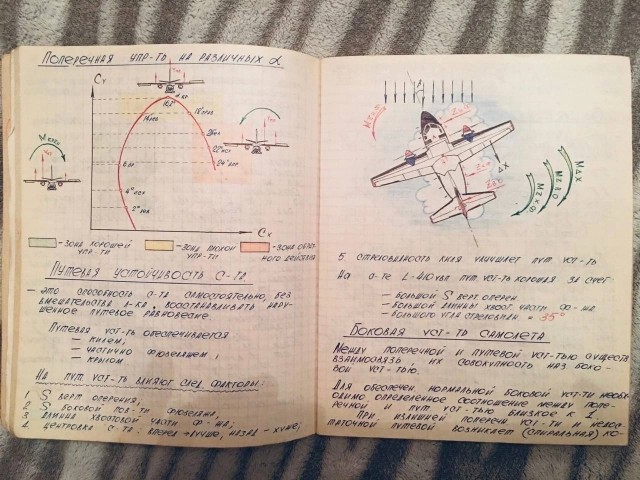 Поперечная упр-ть на различных α
Cy
α кр
16,2°
15° пос
14° пол
20° пос
22° пос
24° пос
6 по
4° пос
2° пов
М кren
Cx
- зона хорошей упр-ти
- зона плохой упр-ти
- зона обратного действия
Путевая устойчивость с-та
— это способность с-та самостоятельно, без
вмешательства л-ка, восстанавливать нару-
шенное путевое равновесие.
Путевая уст-ть обеспечивается
— килем,
— частично фюзеляжем,
— крылом
На пут. уст-ть влияют след. факторы:
1 S верт оперения,
2 S боковой пов-ти фюзеляжа,
3 длина хвостовой части ф-жа;
4 центровка с-та. вперед → лучше, назад - хуже;
β
ΔX
5 стреловидность киля улучшает пут. уст-ть
На с-те L-410увп пут. уст-ть хорошая за счет:
— большой S верт оперен.
— большой длины хвост. части ф-жа
— большого угла стреловидн = 35°
Боковая уст-ть самолета
Между поперечной и путевой уст-тью существ
взаимосвязь, их совокупность наз боко-
вой уст-тью.
Для обеспечен. нормальной боковой уст-ти необх-
одимо определенное соотношение между попе-
речной и пут уст-тью близкое к 1.
При излишней поперечн уст-ти и недос-
таточной путевой возникает (спиральная) ко-